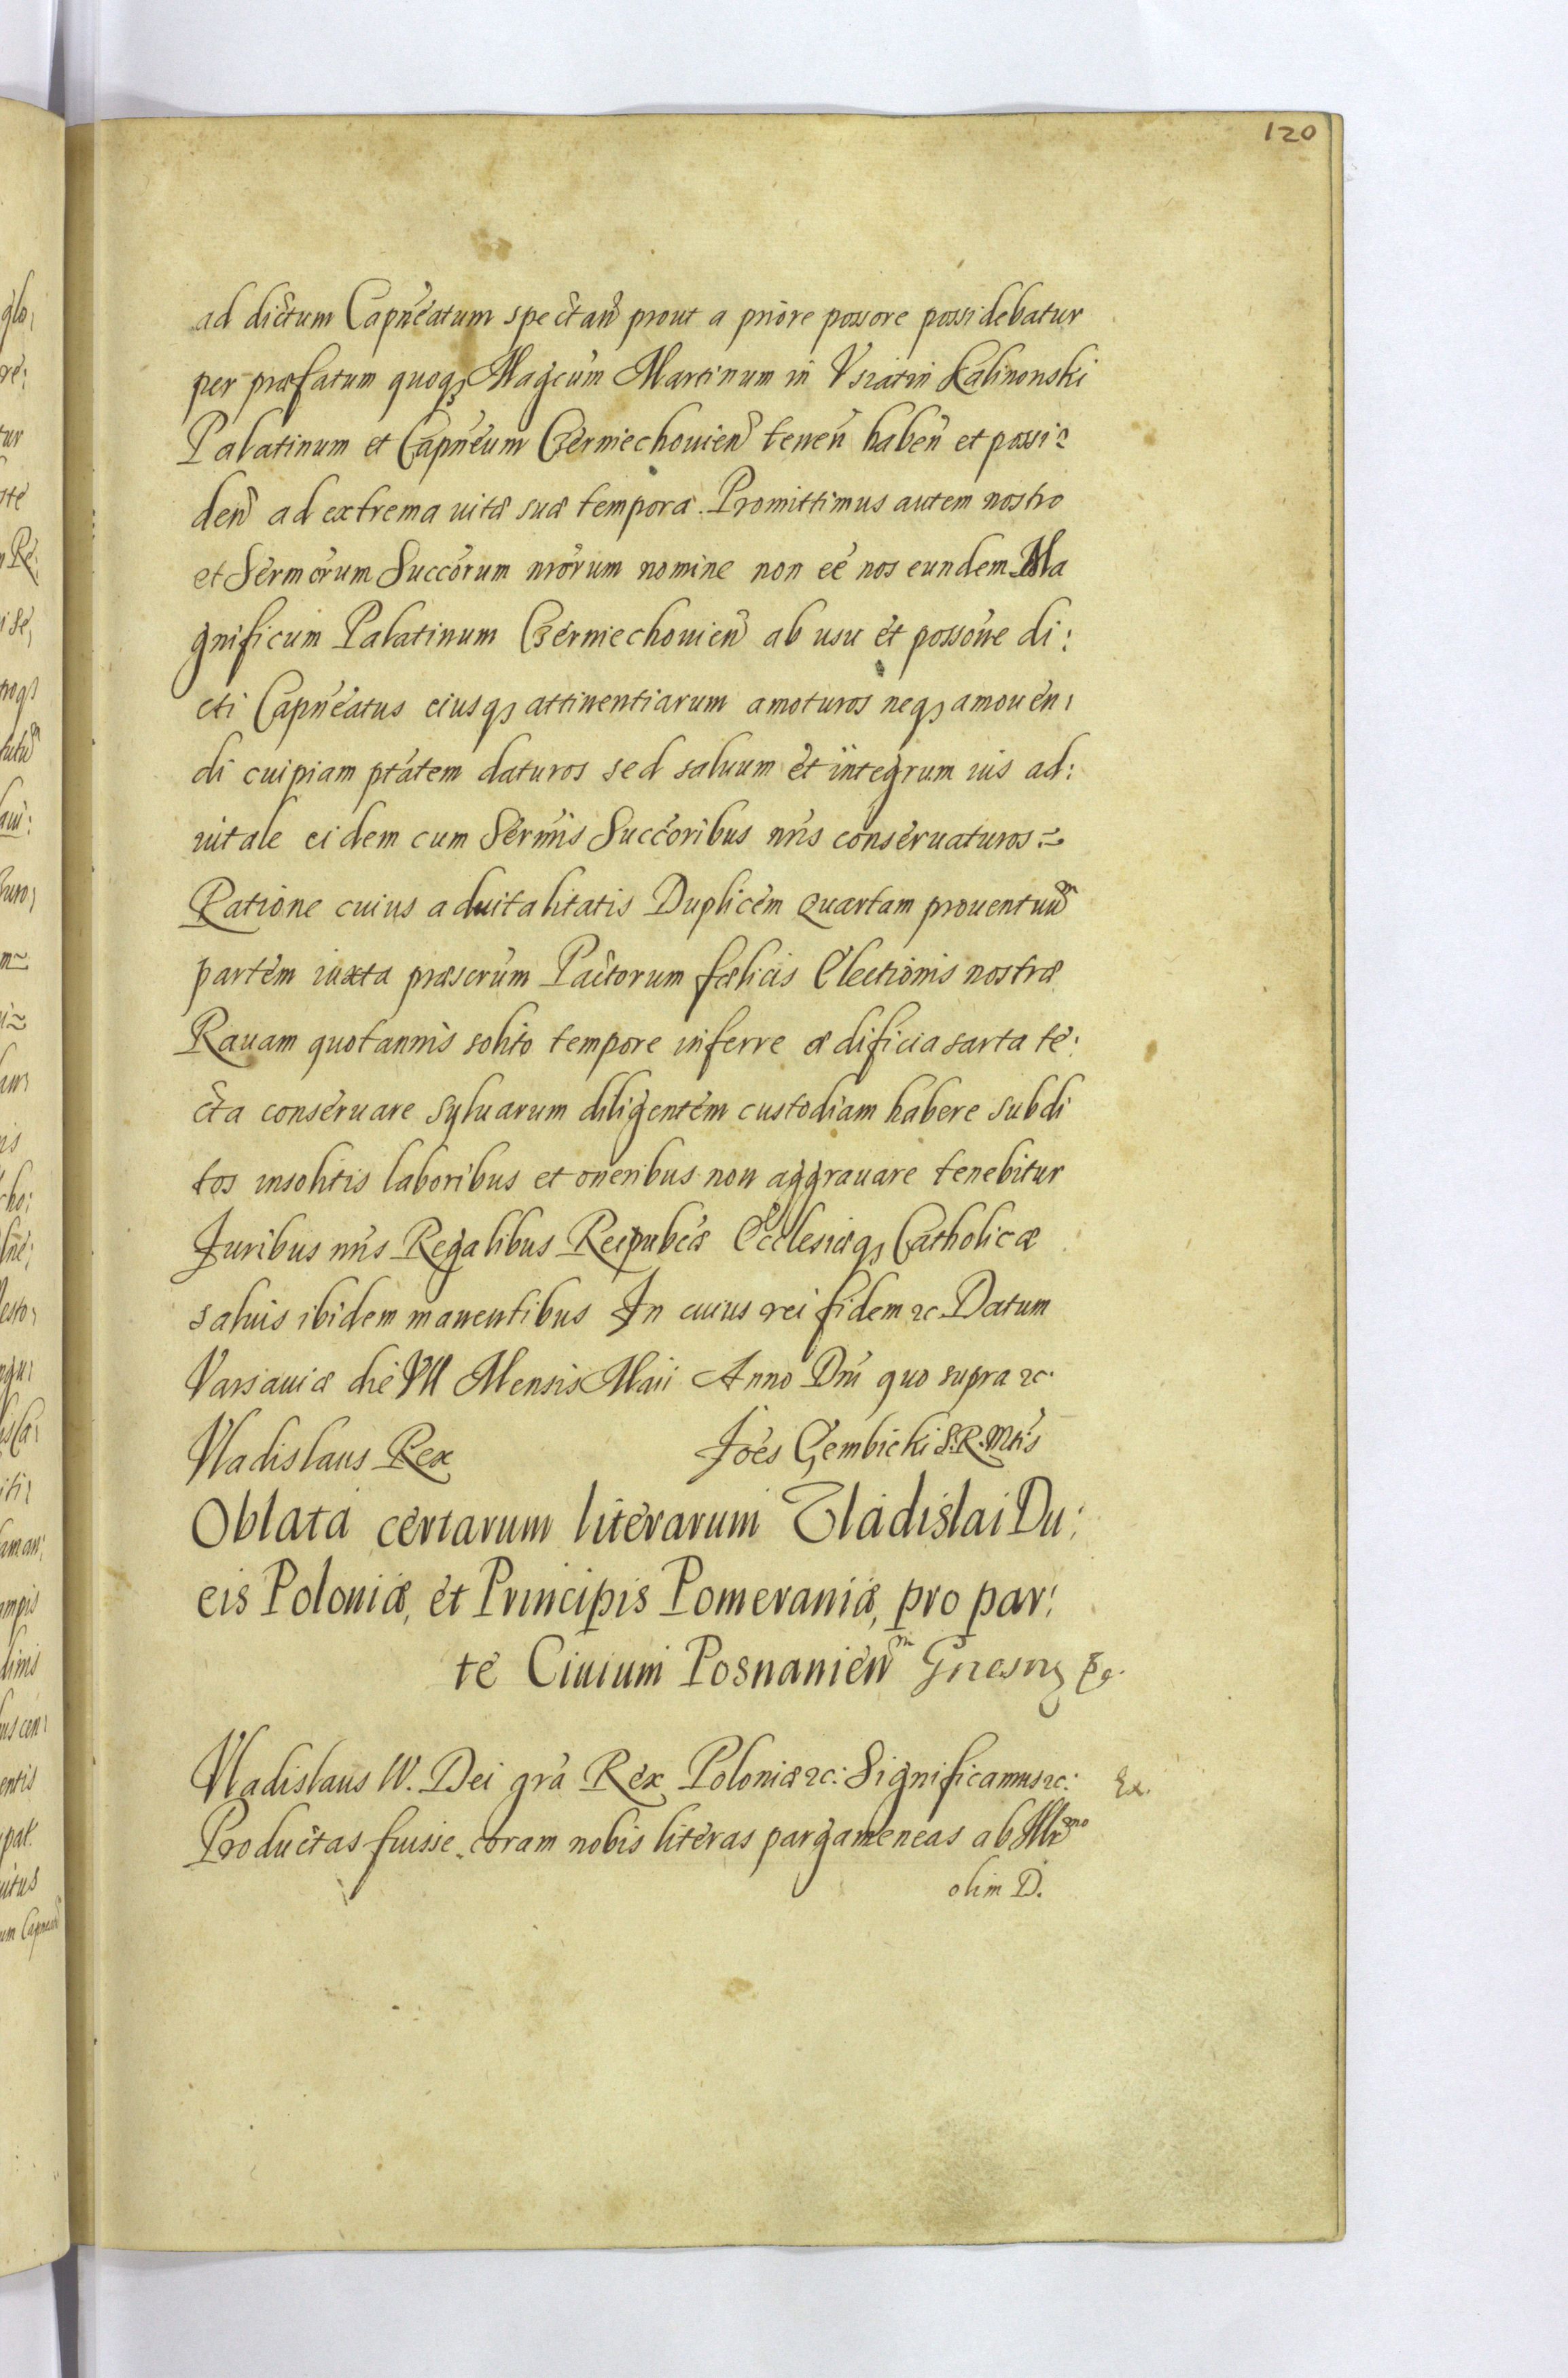 120
ad dictum Capneatum spectan prout a priore possore possidebatur
per præfatum quoq; Magcum Martinum in Vsiatin Kalinonski
Palatinum et Capneum Czerniechouien tenen haben et possi:
den ad extrema uitæ suæ tempora. Promittimus autem nostro
et Sermorum Succorum nrorum nomine non eé nos eundem Ma
gnificum Palatinum Czerniechouien ab usu et possone di:
cti Capneatus eiusq; attinentiarum amoturos neq; amouen:
di cuipiam ptatem daturos sed saluum et integrum ius ad:
uitale eidem cum Sermis Succoribus nris conseruaturos:
Ratione cuius aduitalitatis Duplicem quartam prouentuum
partem iuxta præscrum Pactorum fælicis Electionis nostræ
Rauam quotannis solito tempore inferre ædificia sarta te:
cta conseruare syluarum diligentem custodiam habere subdi
tos insolitis laboribus et oneribus non aggrauare tenebitur
Juribus nris Regalibus Reipubcæ Ecclesiæq; Catholicæ
saluis ibidem manentibus In cuius rei fidem &c. Datum
Varsauiæ die VII Mensis Maii Anno Dni quo supra &c.
Vladislaus Rex Joes Gembicki S.R.Mtis
Oblata certarum literarum Vladislai Du:
cis Poloniæ, et Principis Pomeraniæ, pro par:
te Ciuium Posnanien Gnesn
Vladislaus IV. Dei gra Rex Poloniæ &c: Significamus &c: Ex.
Productas fuisse coram nobis literas pargameneas ab Illrmo
olim D.